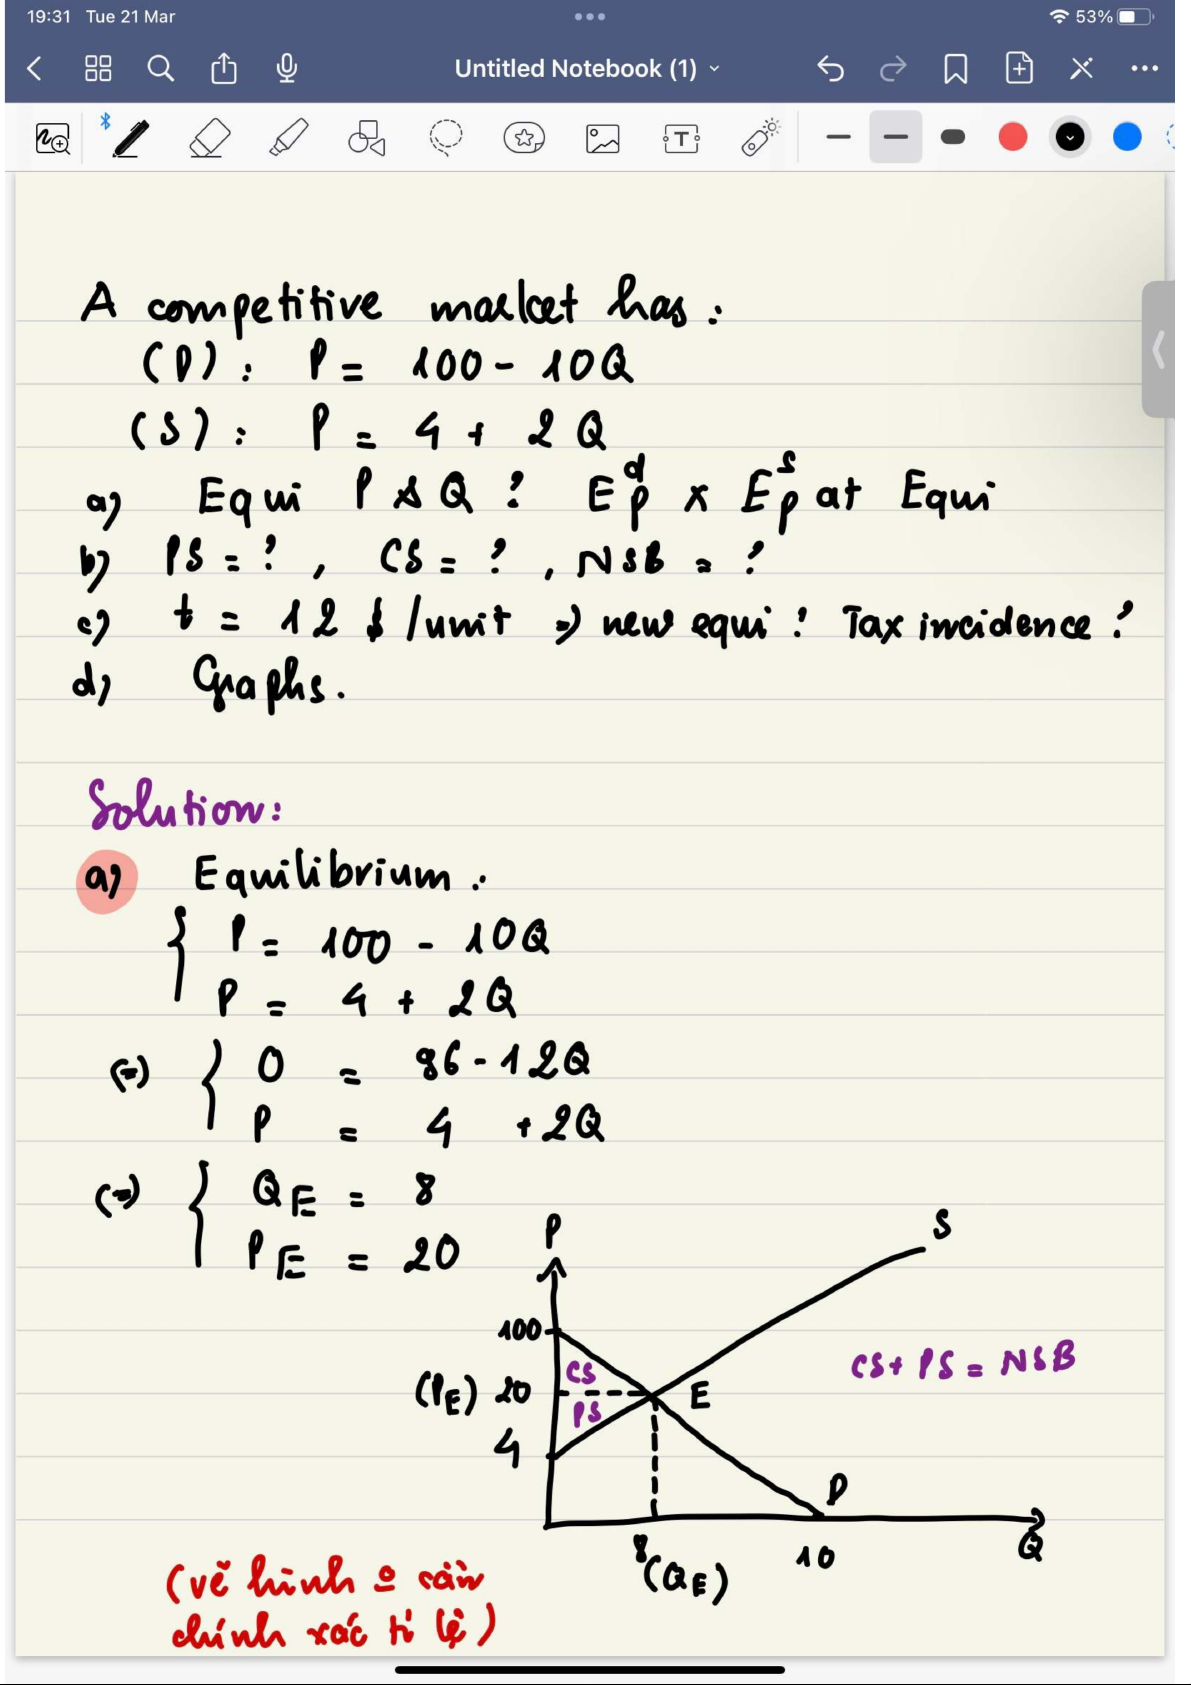 19:31 Tue 21 Mar
53%
Untitled Notebook (1)
T
A competitive market has:
(D): P = 100 - 10Q
(S): P = 4 + 2Q
a) Equi P & Q? E^d_p x E^s_p at Equi
b) PS = ?, CS = ?, NSB = ?
c) t = 12 $/unit => new equi? Tax incidence?
d) Graphs.
Solution:
a) Equilibrium:
{ P = 100 - 10Q
P = 4 + 2Q
(=) { 0 = 96 - 12Q
P = 4 + 2Q
(=) { Q_E = 8
P_E = 20
P
S
100
CS
CS + PS = NSB
(P_E) 20
E
PS
4
D
8 (Q_E)
10
Q
(vẽ hình o cần
chính xác tỉ lệ)